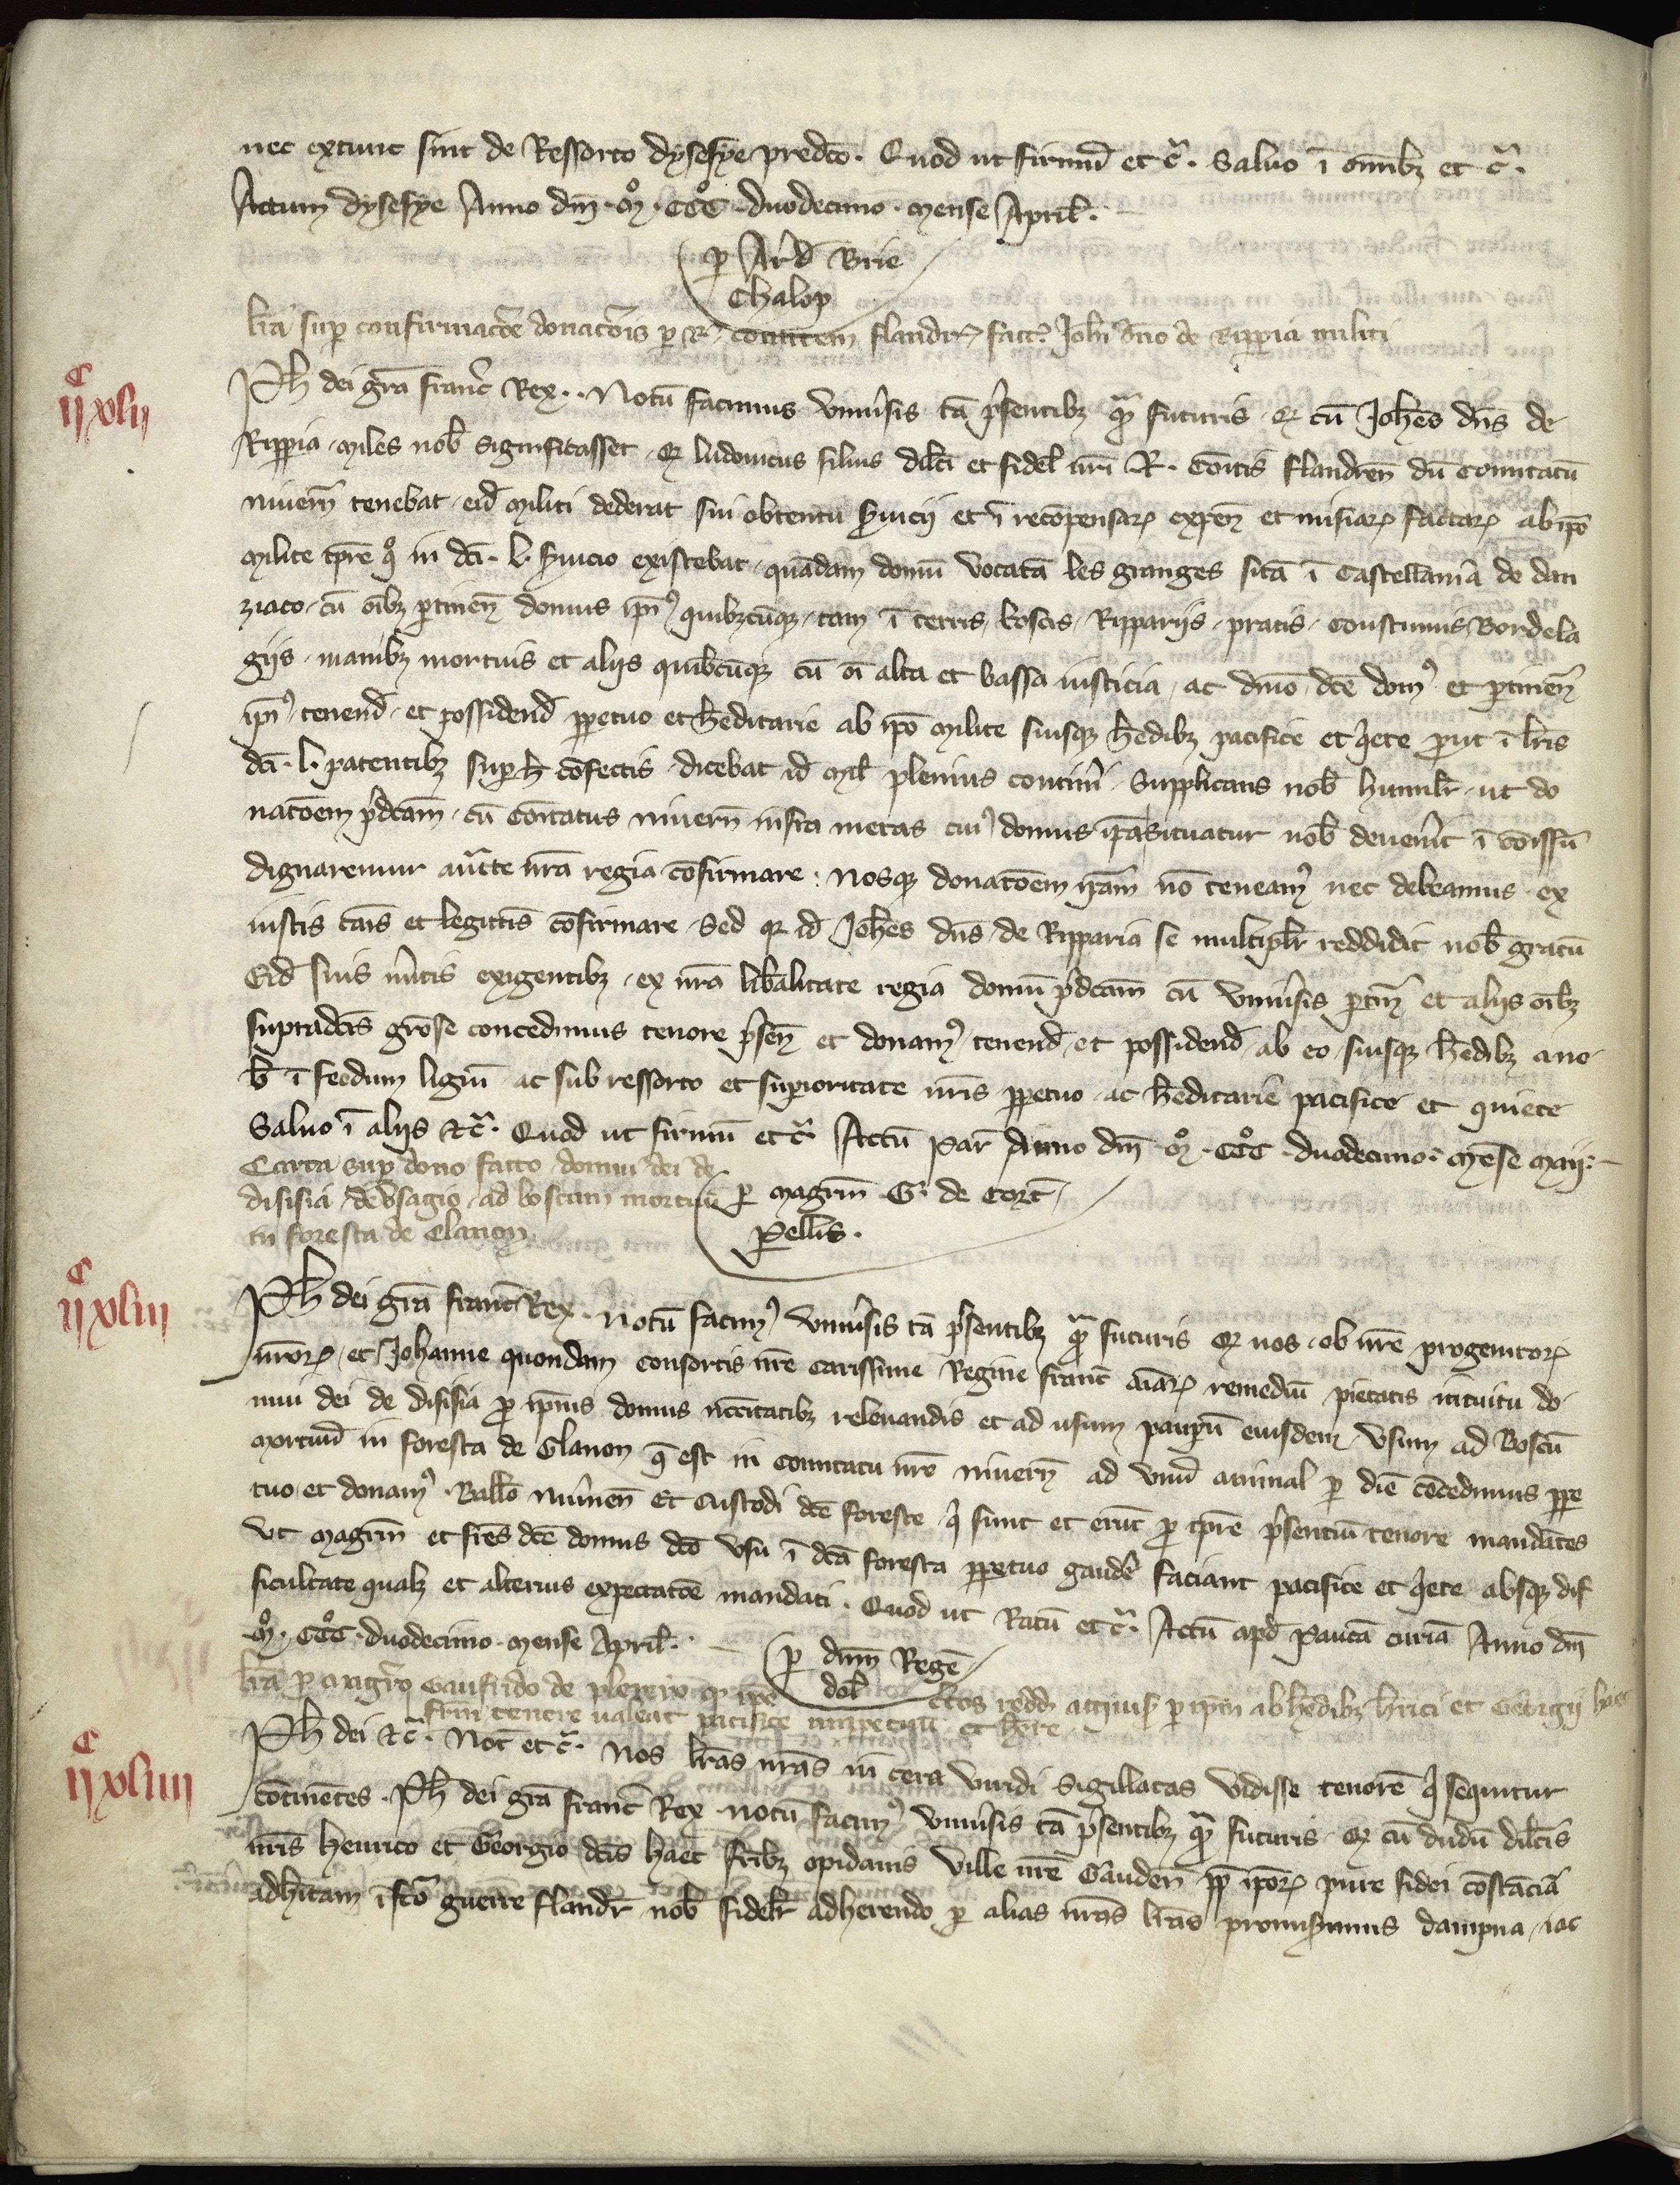 nec extunc sint de Ressorto dysesye predco. Quod ut firmu et c. Saluo i omibz et c.
Actum dysesye Anno dni. mo. CCCo. duodecimo. mense April.
p Ard Brie
Chalop
lra sup confirmacoe donacois p R. comitem flandr. fact Johi dno de Ripparia militi
IIc xlii
Ph dei gra franc Rex. Notu facimus uniusis ta psentibz qm futuris q cu Johes dns de
Rippia miles nob significasset q ludouicus filius dilci et fidel nri R. Comitis flandren du comitatu
niuern tenebat eid militi dederat sui obtentu suicij et i recompensac expen et misiar factar ab ipo
milite tpre quo in dci. l. suicio existebat quadam domu vocata les granges sita i Castellania de dan
ziaco cu oibz ptinen domus ipi quibzcumqz tam i terris boscis Rippariis pratis Coustumis Bordela
giis manibz mortuis et aliis quibcumqz cu oi alta et bassa iusticia ac dnio dce dom et ptinen
ipi tenend et possidend ppetuo et heditarie ab ipo milite suisqz hedibz pacifice et qiete put i lris
dci. l. patentibz sup h confectis dicebat id mil plenius contineri Supplicans nob humilr ut do
nacoem pdcam cu comitatus niuern infra metas cui domus ipa situatur nob deuenit i comissu
dignaremur aucte nra regia confirmare. Nosqz donacoem ipam no teneam nec debeamus ex
iustis cais et legittis confirmare Sed qr id Johes dns de Ripparia se multiplr reddidit nob gratu
Eid suis mitis exigentibz ex nra libalitate regia domu pdcam cu uniusis ptin et aliis oibz
supradcis grose concedimus tenore psen et donam tenend et possidend ab eo suisqz hedibz a no
b i feodum ligiu ac sub ressorto et supioritate nris ppetuo ac heditarie pacifice et quiete
Saluo i aliis et c. Quod ut firmu et c. Actu par Anno dni. mo. CCCo. duodecimo. mense maij.
Carta sup dono facto domui dei de
disisia de usagio ad boscum mortuu
in foresta de Glanon
p magrm G. de Cort
pellis.
IIc xliii
Ph dei gra franc Rex. Notu facim uniusis ta psentibz qm futuris q nos ob nre progenitor
nror et Johanne quondam consortis nre carissime Regine franc aiar remediu pietatis intuitu do
mui dei de disisia p ipius domus necitatibz releuandis et ad usum paupu eiusdem usum ad Boscu
mortuu in foresta de Glanon q est in comitatu nro niuern ad unu animal p die concedimus ppe
tuo et donam. Ballo niuinen Et custodi dce foreste q sunt et erut p tpre psentiu tenore mandates
ut magrm et fres dce domus dco usu i dca foresta ppetuo gaude faciant pacifice et qiete absqz dif
ficultate qualz et alterius expectatoe mandati. Quod ut Ratu et c. Actu apd paucã curia Anno dni
mo. CCCo. duodecimo mense April.
p dnm Rege
dol
lra p magro Gaufrido de plexeyo q ipe ctos reddit acquis p ipm ab hedibz hrici et Georgij haec
frm tenere ualeat pacifice impetuu et
IIc xliiii
Ph dei et c. Not et c. Nos lras nras in cera uiridi Sigillatas uidisse tenore q sequitur
continentes. Ph dei gra franc Rex notu facim uniusis ta psentibz qm futuris q cu dudu dilcis
nris henrico et Georgio dcis haec fribz opidanis Ville nre Ganden pp ipor pure fidei constacia
adhitam i fco guerre flandr nob fidelr adherendo p alias nras lras promisimus dampna iac